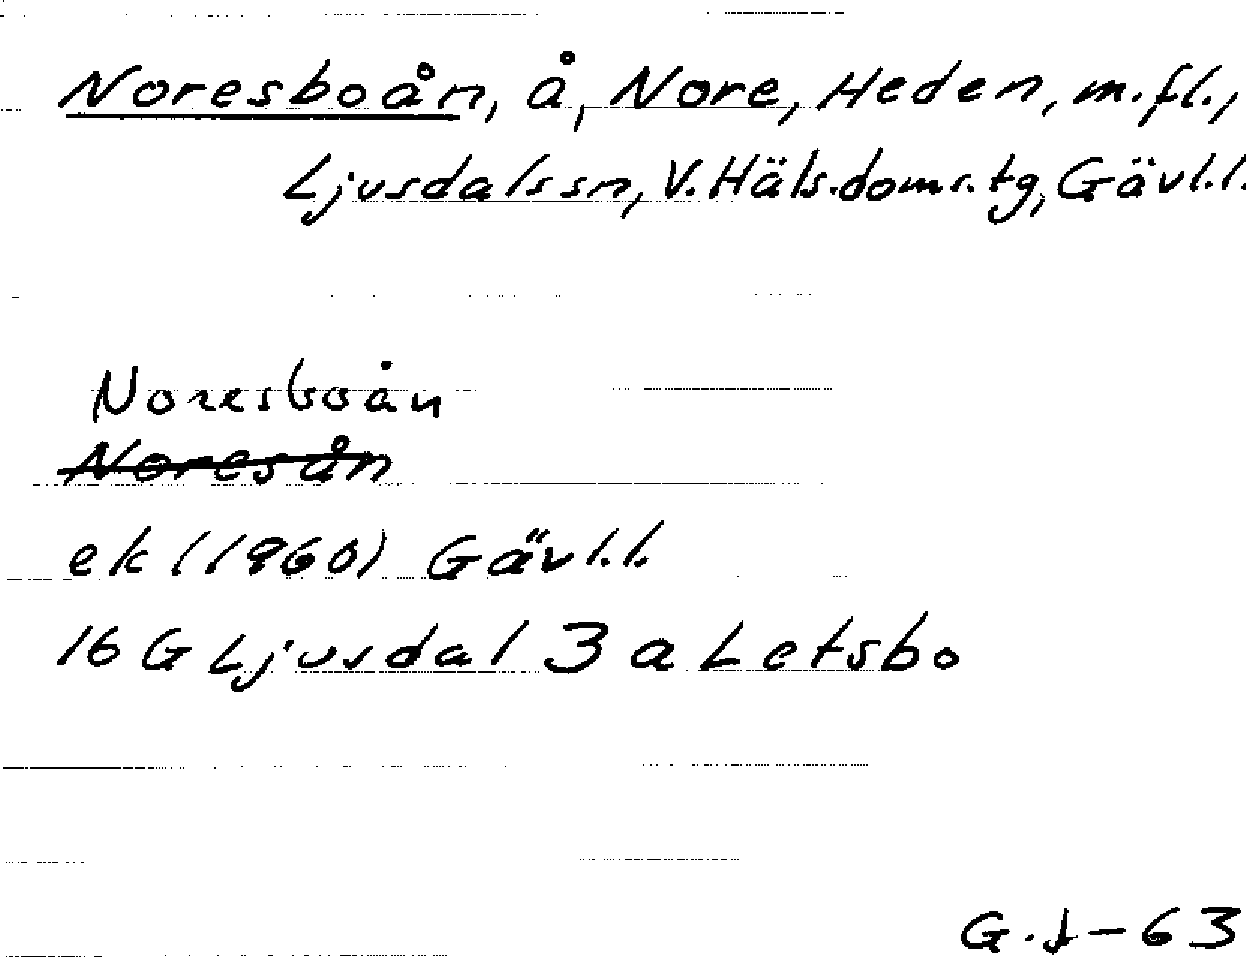 Noresboån, å, Nore, Heden, m.fl.,
Ljusdals sn, V. Häls. doms. tg, Gävl.l.
Noresboån
Noresån
ek (1960) Gävl.l.
16 G Ljusdal 3 a Letsbo
G. J-63